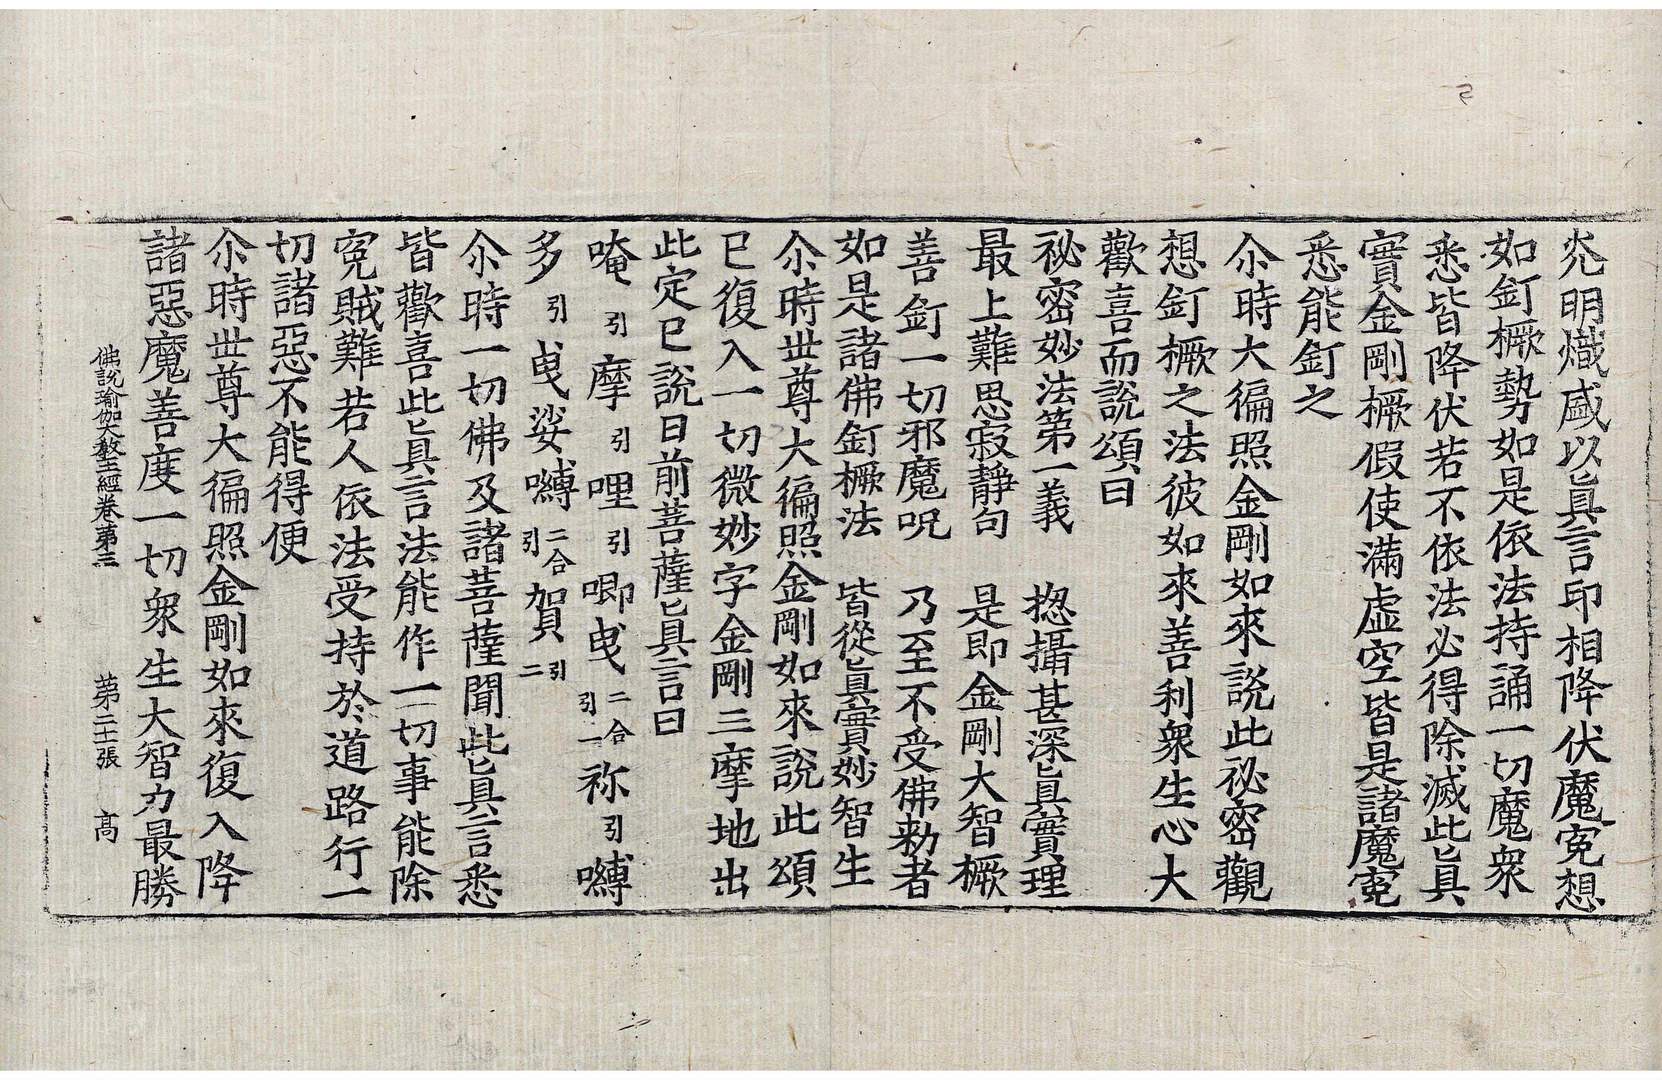 光明熾盛以眞言印相降伏魔寃想
如釘橛勢如是依法持誦一切魔衆
悉皆降伏若不依法必得除滅此眞
實金剛橛假使滿虛空皆是諸魔寃
悉能釘之
尒時大徧照金剛如來說此祕密觀
想釘橛之法彼如來善利衆生心大
歡喜而說頌曰
祕密妙法第一義　揔攝甚深眞實理
最上難思寂靜句　是即金剛大智橛
善釘一切邪魔呪　乃至不受佛勑者
如是諸佛釘橛法　皆從眞實妙智生
尒時世尊大徧照金剛如來說此頌
已復入一切微妙字金剛三摩地出
此定已說日前菩薩眞言曰
唵引摩引哩引唧曳二合引一祢引嚩
多引曳娑嚩二合引賀引二
尒時一切佛及諸菩薩聞此眞言悉
皆歡喜此眞言法能作一切事能除
寃賊難若人依法受持於道路行一
切諸惡不能得便
尒時世尊大徧照金剛如來復入降
諸惡魔善度一切衆生大智力最勝
佛說瑜伽大敎王經卷第三　第二十張　高